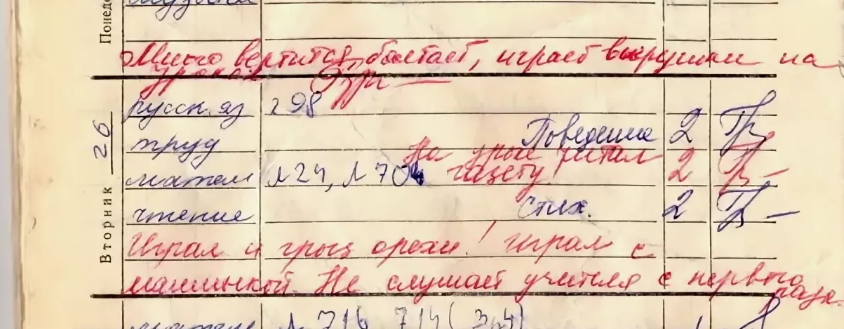 Понед
Много вертится, болтает, играет в игрушки на
уроках
Вторник 26
русск. яз 298
труд Поведение 2
На уроке читал
матем № 24, № 704 газету! 2
чтение стих. 2
Играл и грыз орехи! Играл с
машинкой. Не слушает учителя с первого
раза.
№ 716, 714 (3,4)